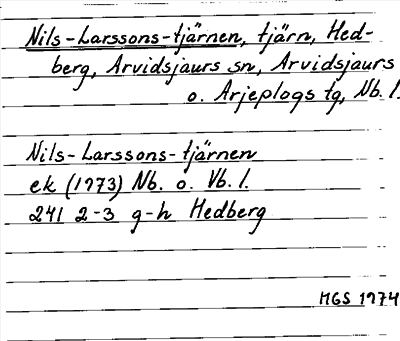 Nils-Larssons-tjärnen, tjärn, Hed-
berg, Arvidsjaurs sn, Arvidsjaurs
o. Arjeplogs tg, Nb. l.
Nils-Larssons-tjärnen
ek (1973) Nb. o. Vb. l.
241 2-3 g-h Hedberg
MGS 1974